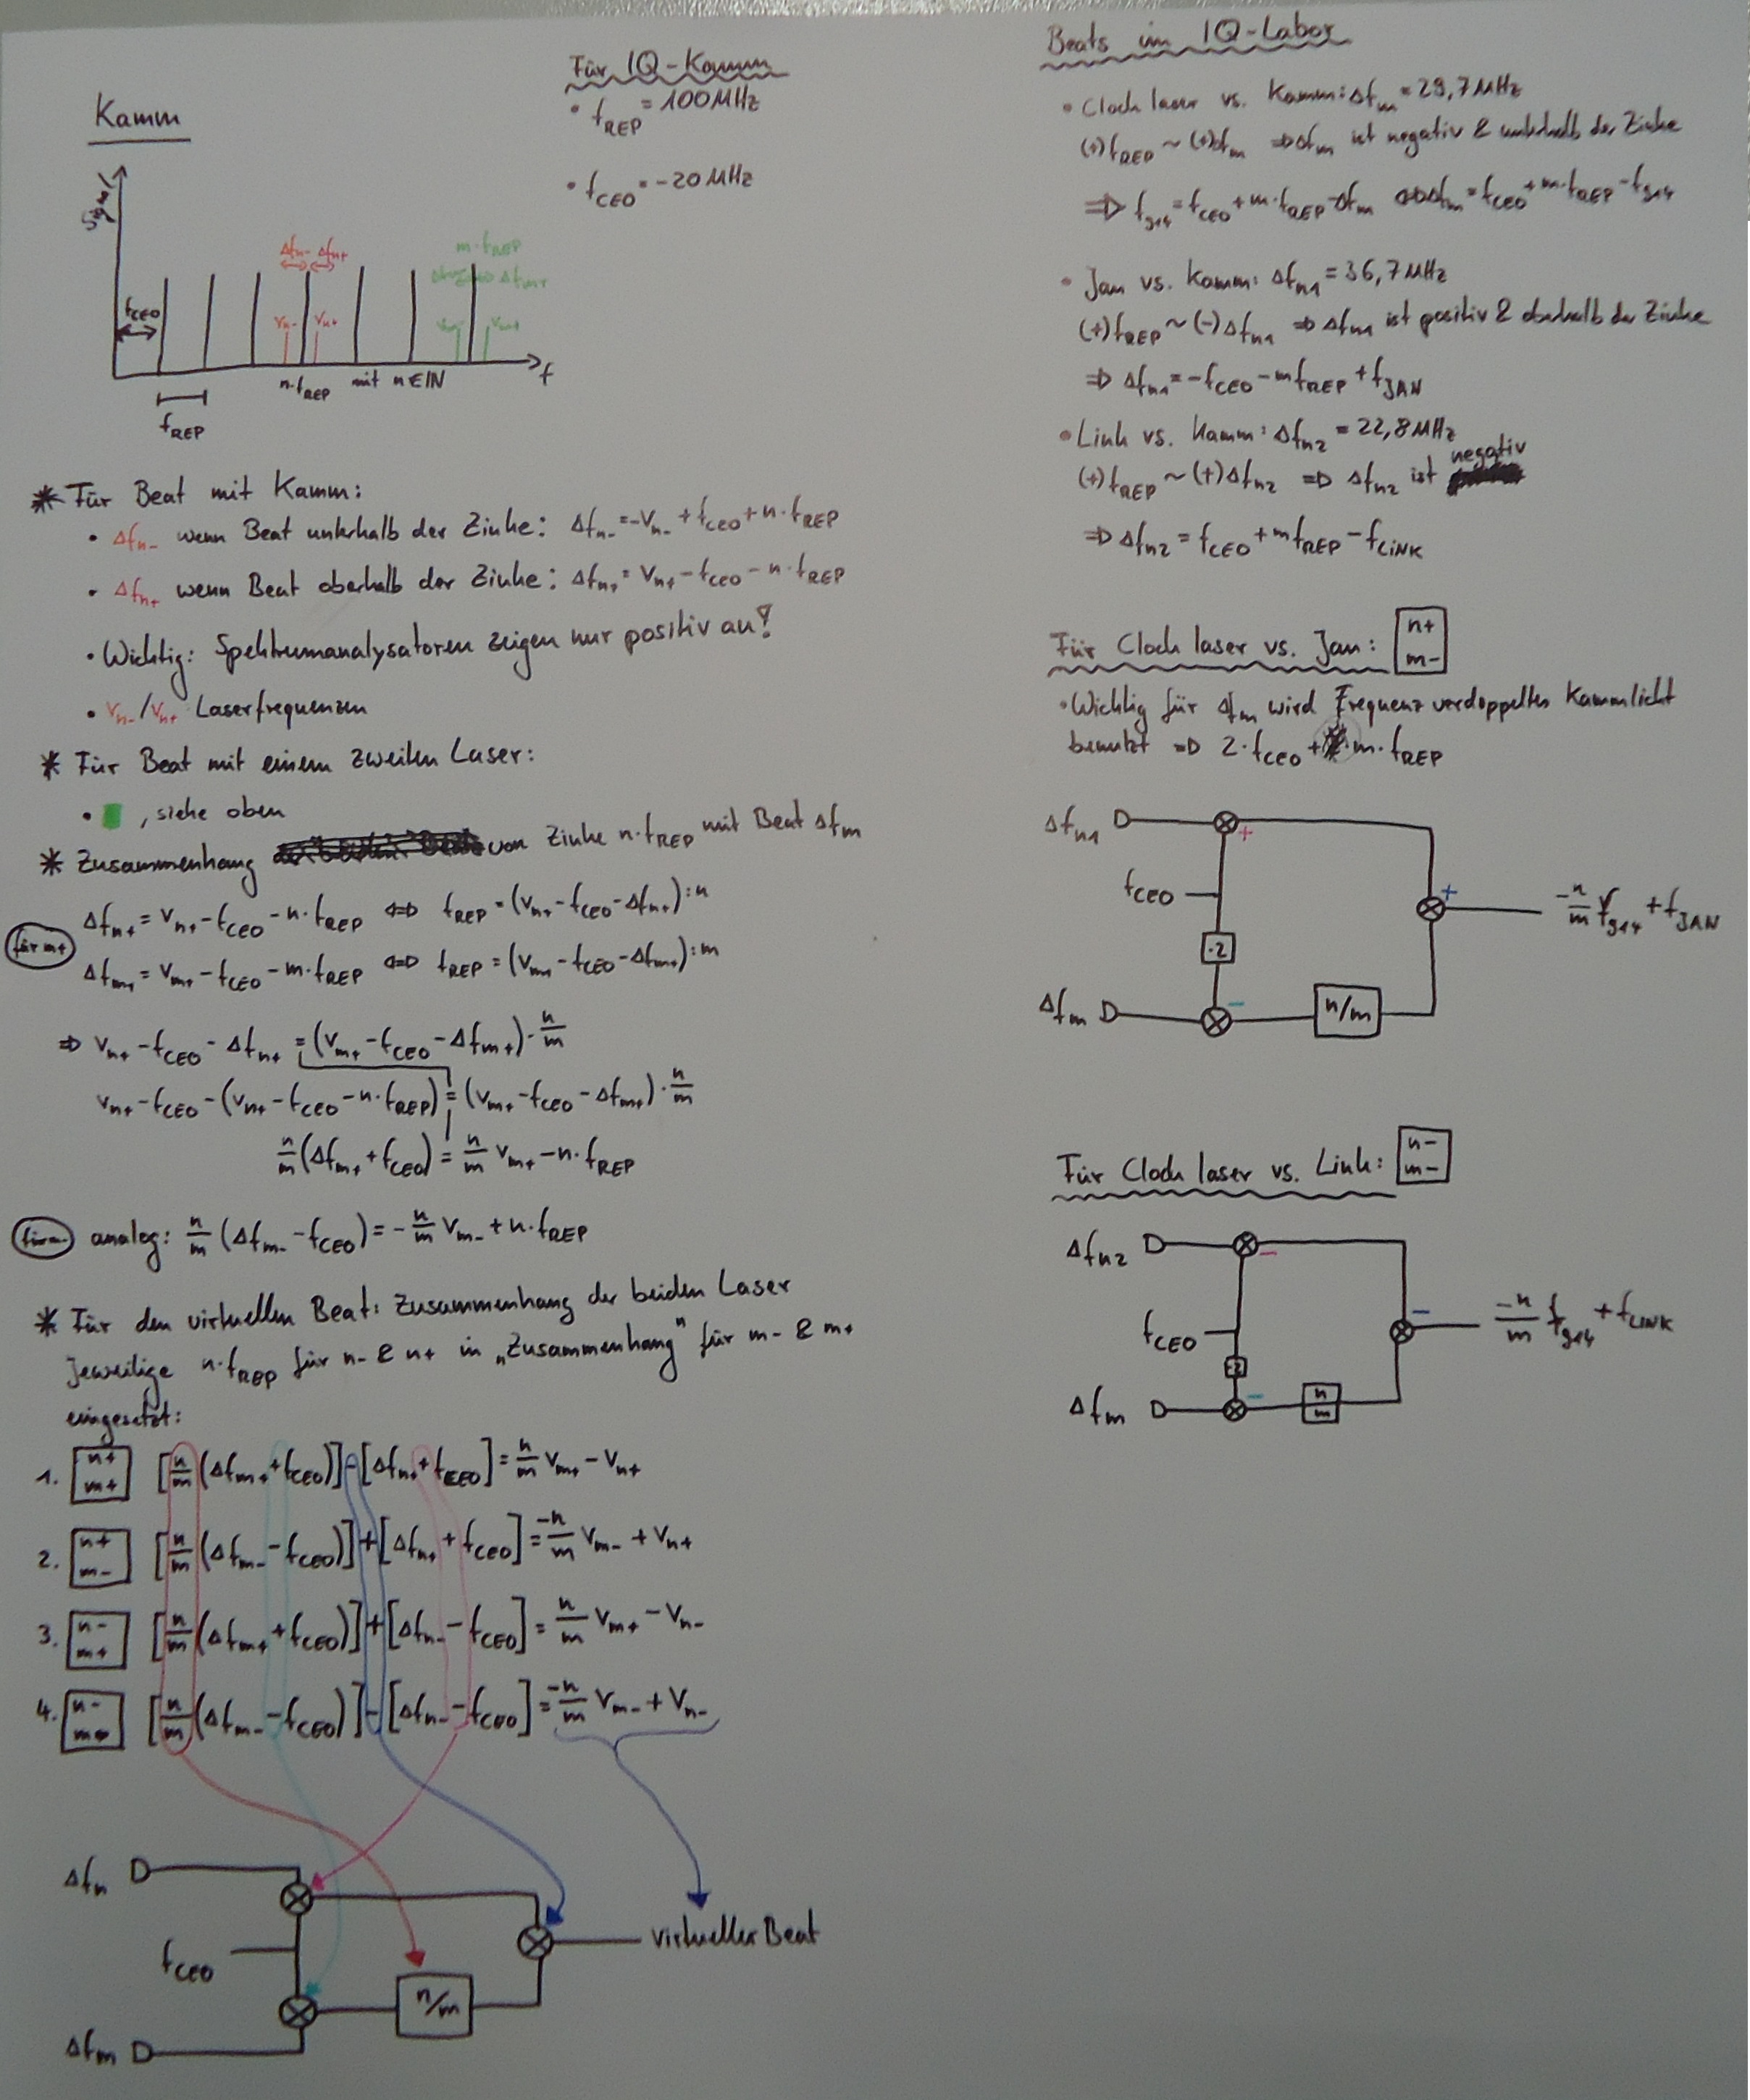 Kamm
Für IQ-Kamm
• f_REP = 100 MHz
• f_CEO = -20 MHz
Signal
Δf_n- Δf_n+
m·f_REP
Δf_m+
f_CEO
ν_n- ν_n+
ν_m+
n·f_REP mit n∈ℕ
f
f_REP
* Für Beat mit Kamm:
• Δf_n- wenn Beat unterhalb der Zinke: Δf_n- = -ν_n- + f_CEO + n·f_REP
• Δf_n+ wenn Beat oberhalb der Zinke: Δf_n+ = ν_n+ - f_CEO - n·f_REP
• Wichtig: Spektrumanalysatoren zeigen nur positiv an!
• ν_n-/ν_n+ Laserfrequenzen
* Für Beat mit einem zweiten Laser:
• , siehe oben
* Zusammenhang von Zinke n·f_REP mit Beat Δf_m
für m+
Δf_n+ = ν_n+ - f_CEO - n·f_REP ⇔ f_REP = (ν_n+ - f_CEO - Δf_n+):n
Δf_m+ = ν_m+ - f_CEO - m·f_REP ⇔ f_REP = (ν_m+ - f_CEO - Δf_m+):m
⇒ ν_n+ - f_CEO - Δf_n+ = (ν_m+ - f_CEO - Δf_m+)·n/m
ν_n+ - f_CEO - (ν_n+ - f_CEO - n·f_REP) = (ν_m+ - f_CEO - Δf_m+)·n/m
n/m (Δf_m+ + f_CEO) = n/m ν_m+ - n·f_REP
für m- analog: n/m (Δf_m- - f_CEO) = - n/m ν_m- + n·f_REP
* Für den virtuellen Beat: Zusammenhang der beiden Laser
jeweilige n·f_REP für n- & n+ in „Zusammenhang" für m- & m+
eingesetzt:
1. n+ m+ [n/m (Δf_m+ + f_CEO)] - [Δf_n+ + f_CEO] = n/m ν_m+ - ν_n+
2. n+ m- [n/m (Δf_m- - f_CEO)] + [Δf_n+ + f_CEO] = -n/m ν_m- + ν_n+
3. n- m+ [n/m (Δf_m+ + f_CEO)] + [Δf_n- - f_CEO] = n/m ν_m+ - ν_n-
4. n- m- [n/m (Δf_m- - f_CEO)] - [Δf_n- - f_CEO] = -n/m ν_m- + ν_n-
Δf_n
f_CEO
n/m
Δf_m
virtueller Beat
Beats im IQ-Labor
• Clock laser vs. Kamm: Δf_m = 29,7 MHz
(+)f_REP ~ (+)Δf_m ⇒ Δf_m ist negativ & unterhalb der Zinke
⇒ f_914 = f_CEO + m·f_REP - Δf_m ⇔ Δf_m = f_CEO + m·f_REP - f_914
• Jan vs. Kamm: Δf_n1 = 36,7 MHz
(+)f_REP ~ (-)Δf_n1 ⇒ Δf_n1 ist positiv & oberhalb der Zinke
⇒ Δf_n1 = -f_CEO - m f_REP + f_JAN
• Link vs. Kamm: Δf_n2 = 22,8 MHz
(+)f_REP ~ (+)Δf_n2 ⇒ Δf_n2 ist negativ
⇒ Δf_n2 = f_CEO + m f_REP - f_LINK
Für Clock laser vs. Jan: n+ m-
• Wichtig für Δf_m wird Frequenz verdoppeltes Kammlicht
benutzt ⇒ 2·f_CEO + m·f_REP
Δf_n1
+
f_CEO
·2
+
-n/m f_914 + f_JAN
Δf_m
-
n/m
Für Clock laser vs. Link: n- m-
Δf_n2
-
f_CEO
·2
-
-n/m f_914 + f_LINK
Δf_m
-
n/m